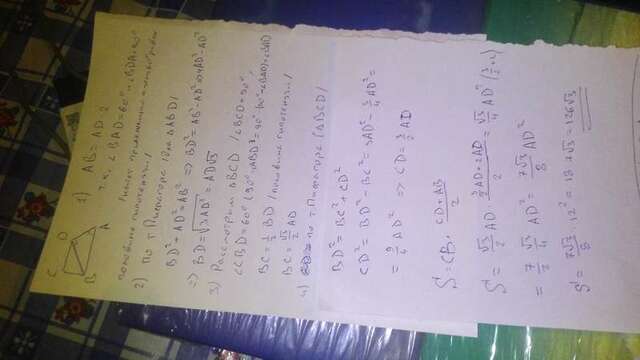 C D
B A
1) AB = AD · 2
т.к. ∠BAD = 60° и ∠BDA = 90°
половина гипотенузы /
2) по т Пифагора /для ΔABD/
BD² + AD² = AB² ⇒ BD² = AB² - AD² = 4AD² - AD²
⇒ BD = √3AD² = AD√3
3) Рассмотрим ΔBCD /∠BCD = 90°,
∠CBD = 60°
BC = 1/2 BD /половина гипотенузы/
BC = √3/2 AD
4) по т Пифагора (ΔBCD/
BD² = BC² + CD²
CD² = BD² - BC² = 3AD² - 3/4 AD² =
= 9/4 AD² ⇒ CD = 3/2 AD
S = CB · (CD + AB)/2
S = √3/2 AD · (3/2 AD + 2AD)/2 = √3/4 AD² (3/2 + 2)
= 7/2 · √3/4 AD² = 7√3/8 AD²
S = 7√3/8 · 12² = 18 · 7√3 = 126√3